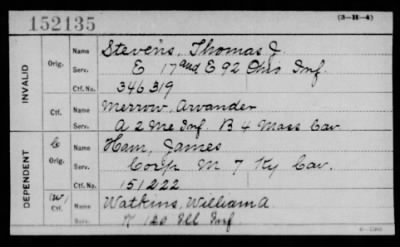 152135
(3-H-4)
INVALID
Orig.
Name Stevens, Thomas J.
Serv. E 17 and E 92 Ohio Inf.
Ctf. No. 346319
Ctf.
Name Merrow, Arvander
Serv. A 2 Me Inf. B 4 Mass Cav.
DEPENDENT
C
Orig.
Name Ham, James
Serv. Corp M 7 Ky Cav.
Ctf. No. 151222
(W)
Ctf.
Name Watkins, William A
Serv. Ill Inf